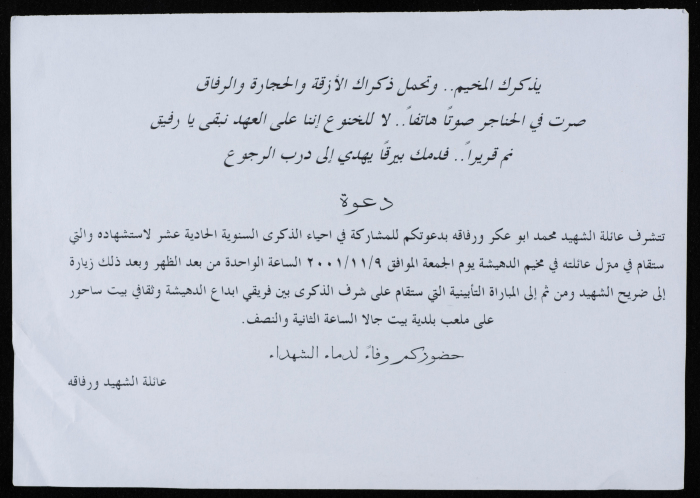 يذكرك المخيم.. وتحمل ذكراك الأزقة والحجارة والرفاق
صرت في الحناجر صوتًا هاتفاً.. لا للخنوع إننا على العهد نبقى يا رفيق
نم قريراً.. فدمك بيرقًا يهدي إلى درب الرجوع
دعوة
تتشرف عائلة الشهيد محمد ابو عكر ورفاقه بدعوتكم للمشاركة في احياء الذكرى السنوية الحادية عشر لاستشهاده والتي
ستقام في منزل عائلته في مخيم الدهيشة يوم الجمعة الموافق ٢٠٠١/١١/٩ الساعة الواحدة من بعد الظهر وبعد ذلك زيارة
إلى ضريح الشهيد ومن ثم إلى المباراة التأبينية التي ستقام على شرف الذكرى بين فريقي ابداع الدهيشة وثقافي بيت ساحور
على ملعب بلدية بيت جالا الساعة الثانية والنصف.
حضوركم وفاءً لدماء الشهداء
عائلة الشهيد ورفاقه